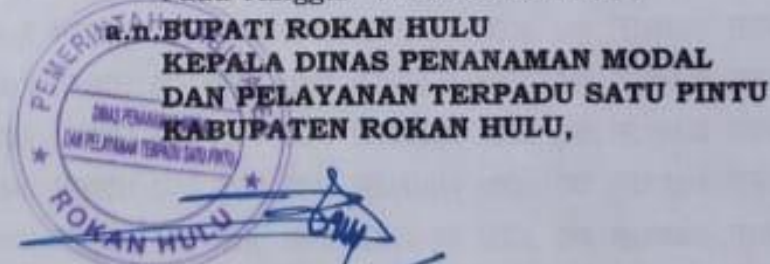 a.n.BUPATI ROKAN HULU
KEPALA DINAS PENANAMAN MODAL
DAN PELAYANAN TERPADU SATU PINTU
KABUPATEN ROKAN HULU,
PEMERINTAH
DINAS PENANAMAN
DAN PELAYANAN TERPADU SATU PINTU
ROKAN HULU